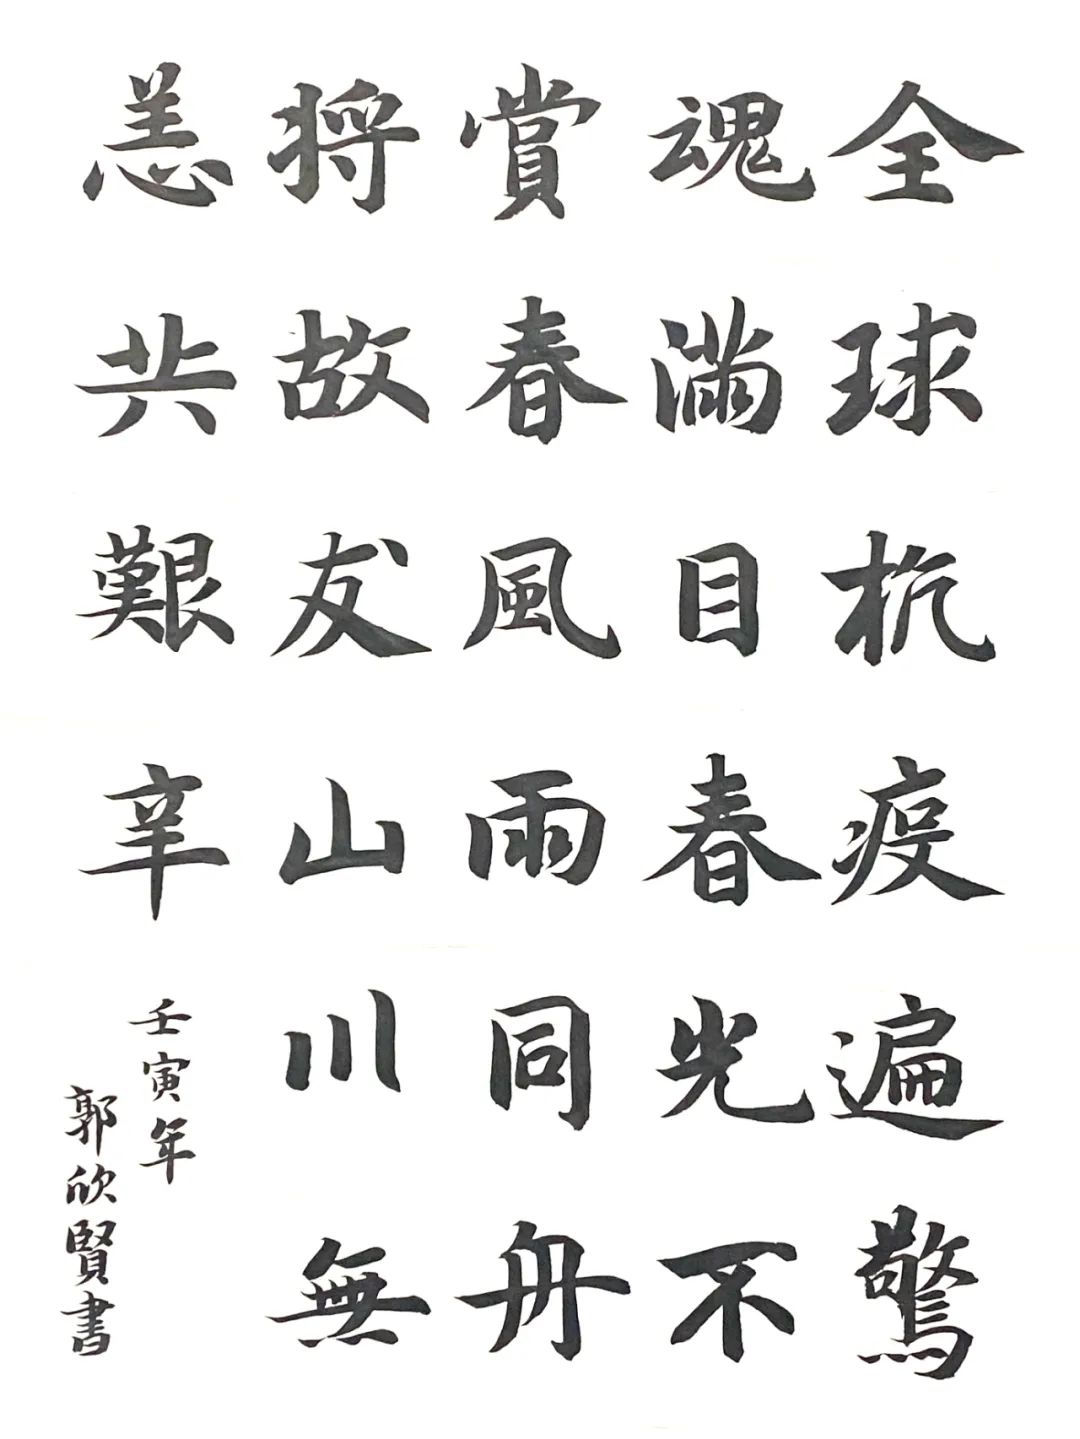 全球抗疫遍驚
魂滿目春光不
賞春風雨同舟
將故友山川無
恙共艱辛
壬寅年
郭欣賢書